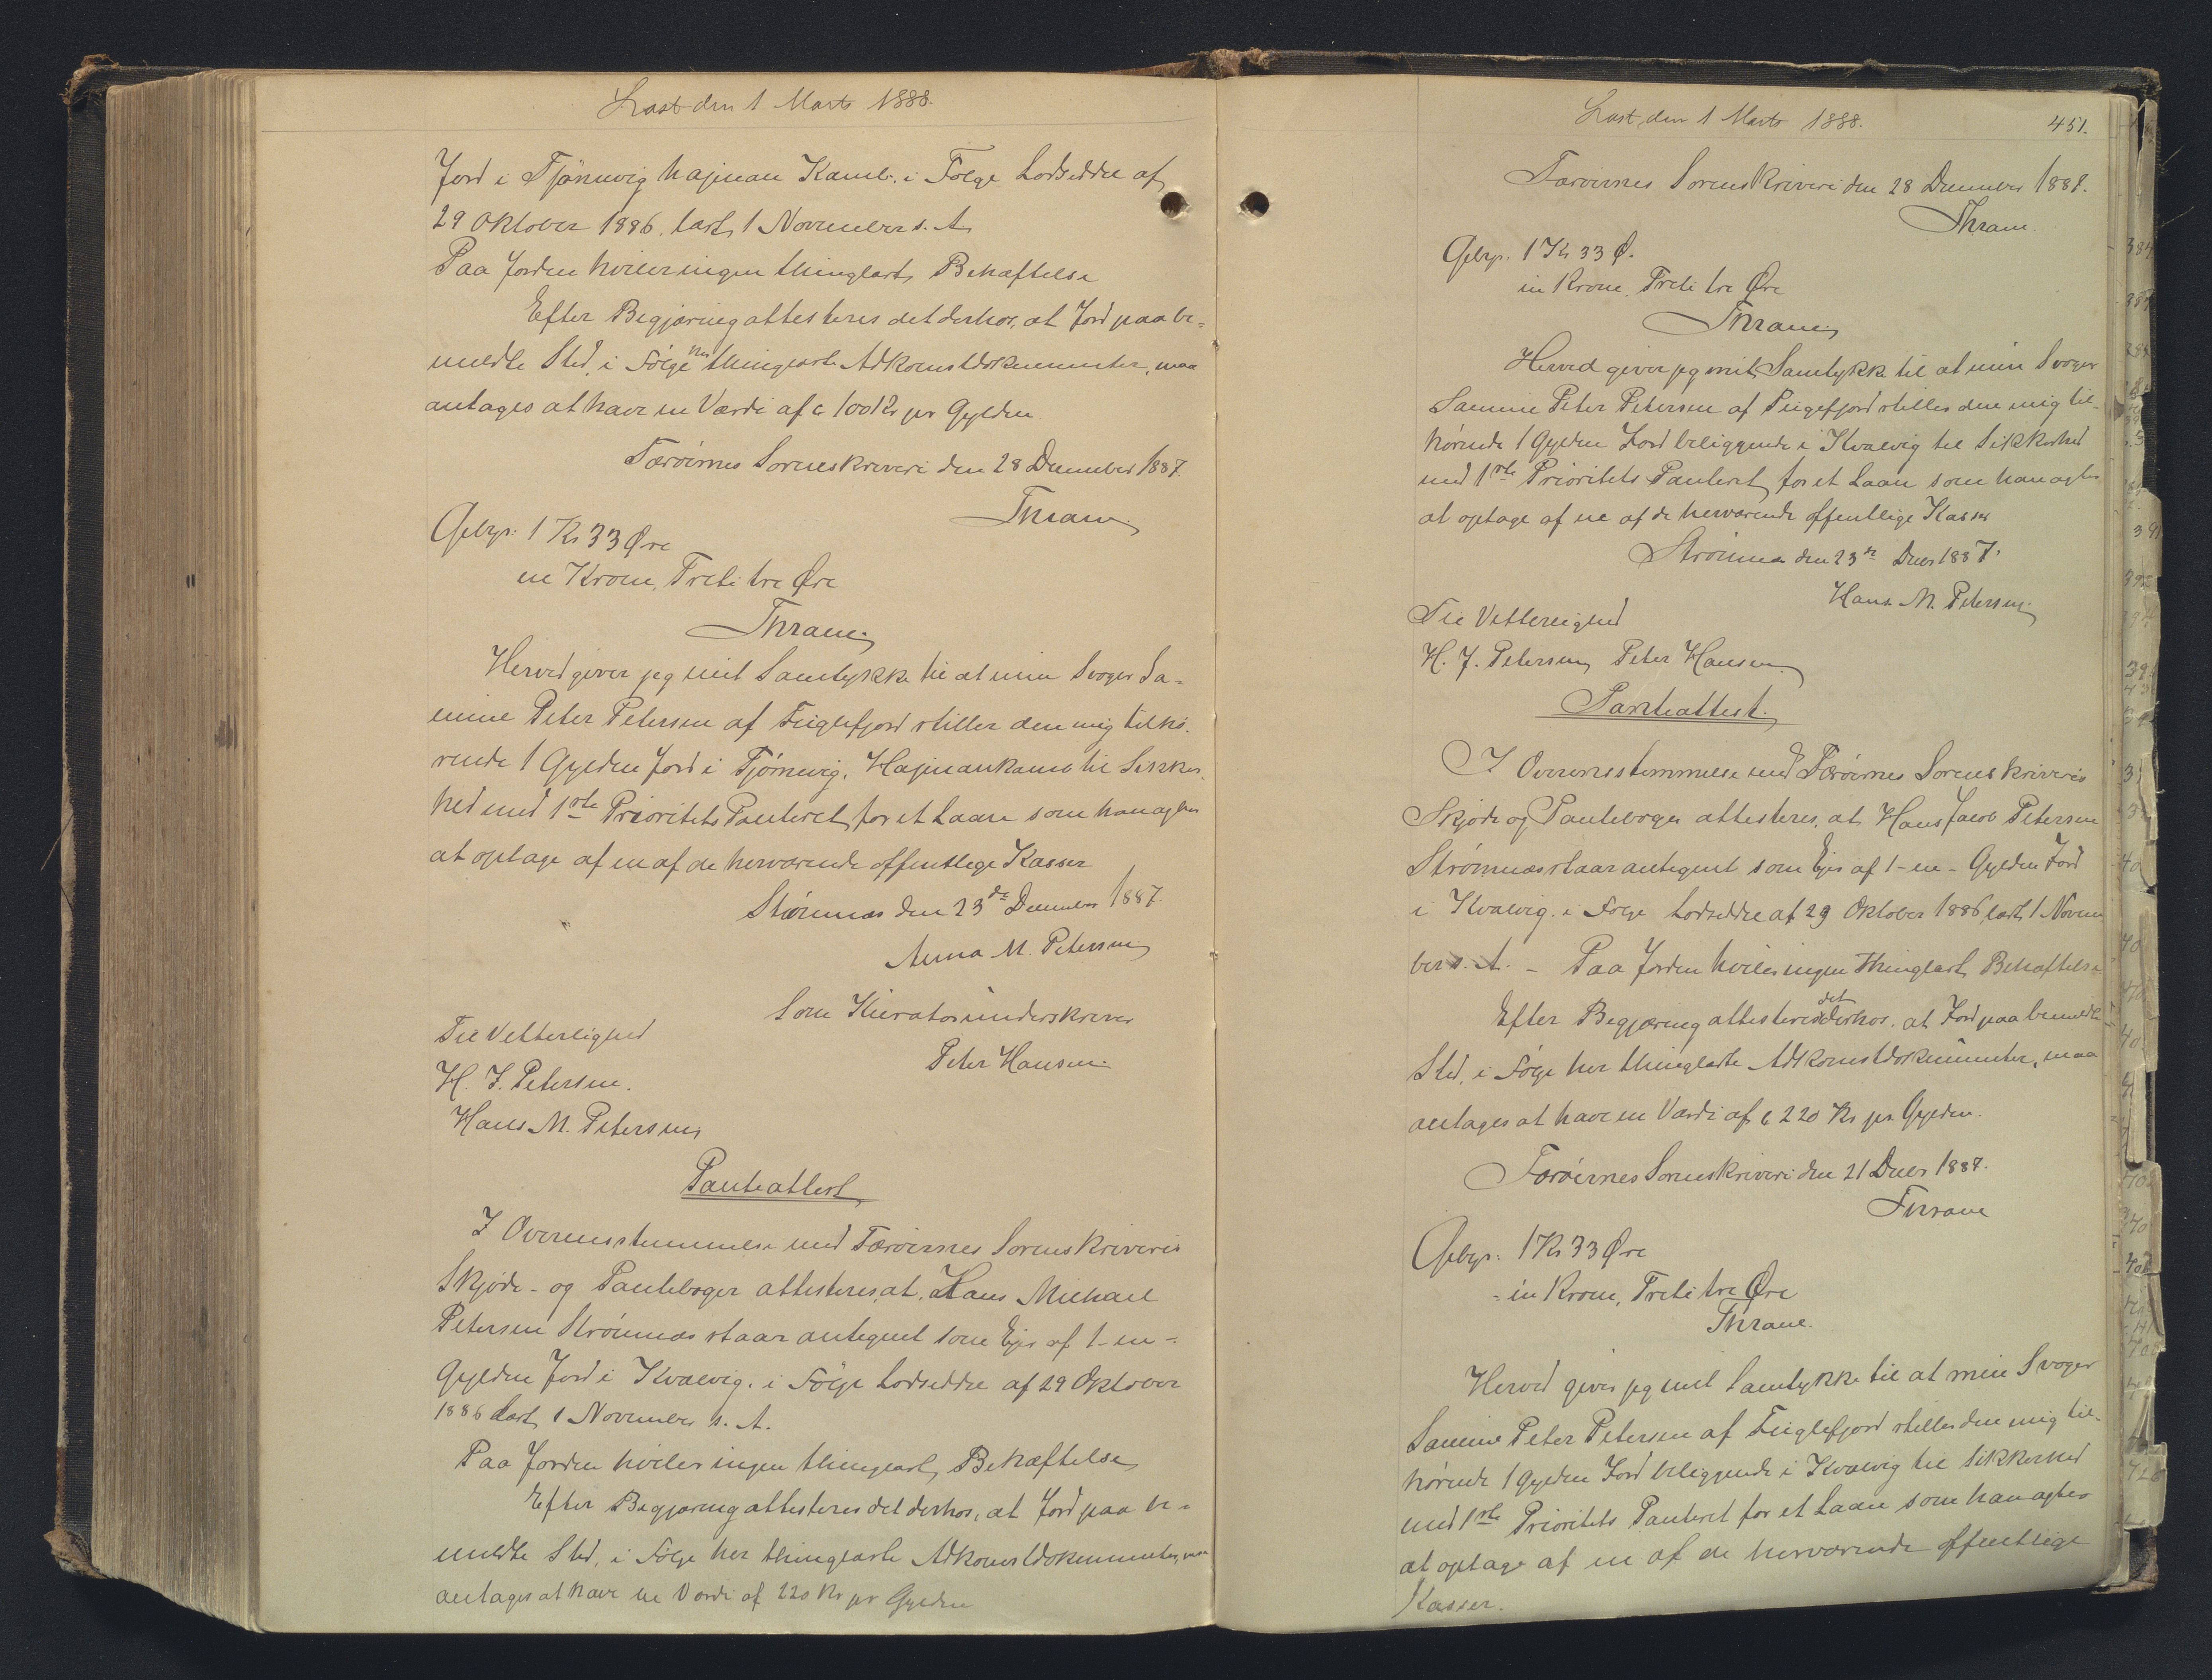 Læst den 1 Marts 1888.
Jord i Tjörnuvig Hajman Kamb. i Følge Lodseddel af
29 Oktober 1886. læst 1 November s. A.
Paa Jorden hviler ingen thinglæst Behæftelse
Efter Begjæring attesteres det derhos, at Jord paa be-
meldte Sted, i Følge her thinglæste Adkomstdokumenter, maa
antages at have en Værdi af c 100 Kr pr Gylden
Færöernes Sorenskriveri den 28 December 1887.
Thrane.
Gebyr: 1 Kr 33 Øre
en Krone, Treti tre Øre
Thrane.
Herved giver jeg mit Samtykke til at min Svoger Sa-
mine Peter Petersen af Fuglefjord stiller den mig tilhö-
rende 1 Gylden Jord i Tjörnuvig, Hajmankamb til Sikker-
hed med 1ste Prioritets Panteret for et Laan som han agter
at optage af en af de herværende offentlige Kasser
Strömnæs den 23de December 1887.
Anna M. Petersen
Som Kurator underskriver
Til Vitterlighed
Peter Hansen
H. J. Petersen.
Hans M. Petersen
Panteattest
I Overensstemmelse med Færöernes Sorenskriveris
Skjöde- og Pantebøger attesteres, at Hans Michael
Petersen Strömnæs staar antegnet som Ejer af 1- en -
Gylden Jord i Kvalvig. i Følge Lodseddel af 29 Oktober
1886 læst 1 November s. A.
Paa Jorden hviler ingen thinglæst Behæftelse
Efter Begjæring attesteres det derhos, at Jord paa be-
meldte Sted, i Følge her thinglæste Adkomstdokumenter, maa
antages at have en Værdi af 220 Kr pr Gylden
Læst den 1 Marts 1888.
451.
Færöernes Sorenskriveri den 28 December 1887.
Thrane.
Gebyr. 1 Kr 33 Ø.
en Krone, Treti tre Øre
Thrane
Herved giver jeg mit Samtykke til at min Svoger
Samine Peter Petersen af Fuglefjord stiller den mig til-
hörende 1 Gylden Jord beliggende i Kvalvig til Sikkerhed
med 1ste Prioritets Panteret for et Laan som han agter
at optage af en af de herværende offentlige Kasser
Strömnæs den 23de Decbr 1887.
Hans M. Petersen
Til Vitterlighed
H. J. Petersen Peter Hansen
Panteattest.
I Overensstemmelse med Færöernes Sorenskriveris
Skjöde og Pantebøger attesteres, at Hans Jacob Petersen
Strömnæs staar antegnet som Ejer af 1- en - Gylden Jord
i Kvalvig. i Følge Lodseddel af 29 Oktober 1886, læst 1 Novem
ber s. A. - Paa Jorden hviler ingen thinglæst Behæftelse
Efter Begjæring attesteres det derhos, at Jord paa bemeldte
Sted, i Følge her thinglæste Adkomstdokumenter, maa
antages at have en Værdi af c 220 Kr pr. Gylden.
Færöernes Sorenskriveri den 21 Decbr 1887.
Thrane
Gebyr: 1 Kr 33 Øre
- en Krone, Treti tre Øre
Thrane.
Herved giver jeg mit Samtykke til at min Svoger
Samine Peter Petersen af Fuglefjord stiller den mig til-
hörende 1 Gylden Jord beliggende i Kvalvig til Sikkerhed
med 1ste Prioritets Panteret for et Laan som han agter
at optage af en af de herværende offentlige
Kasser.